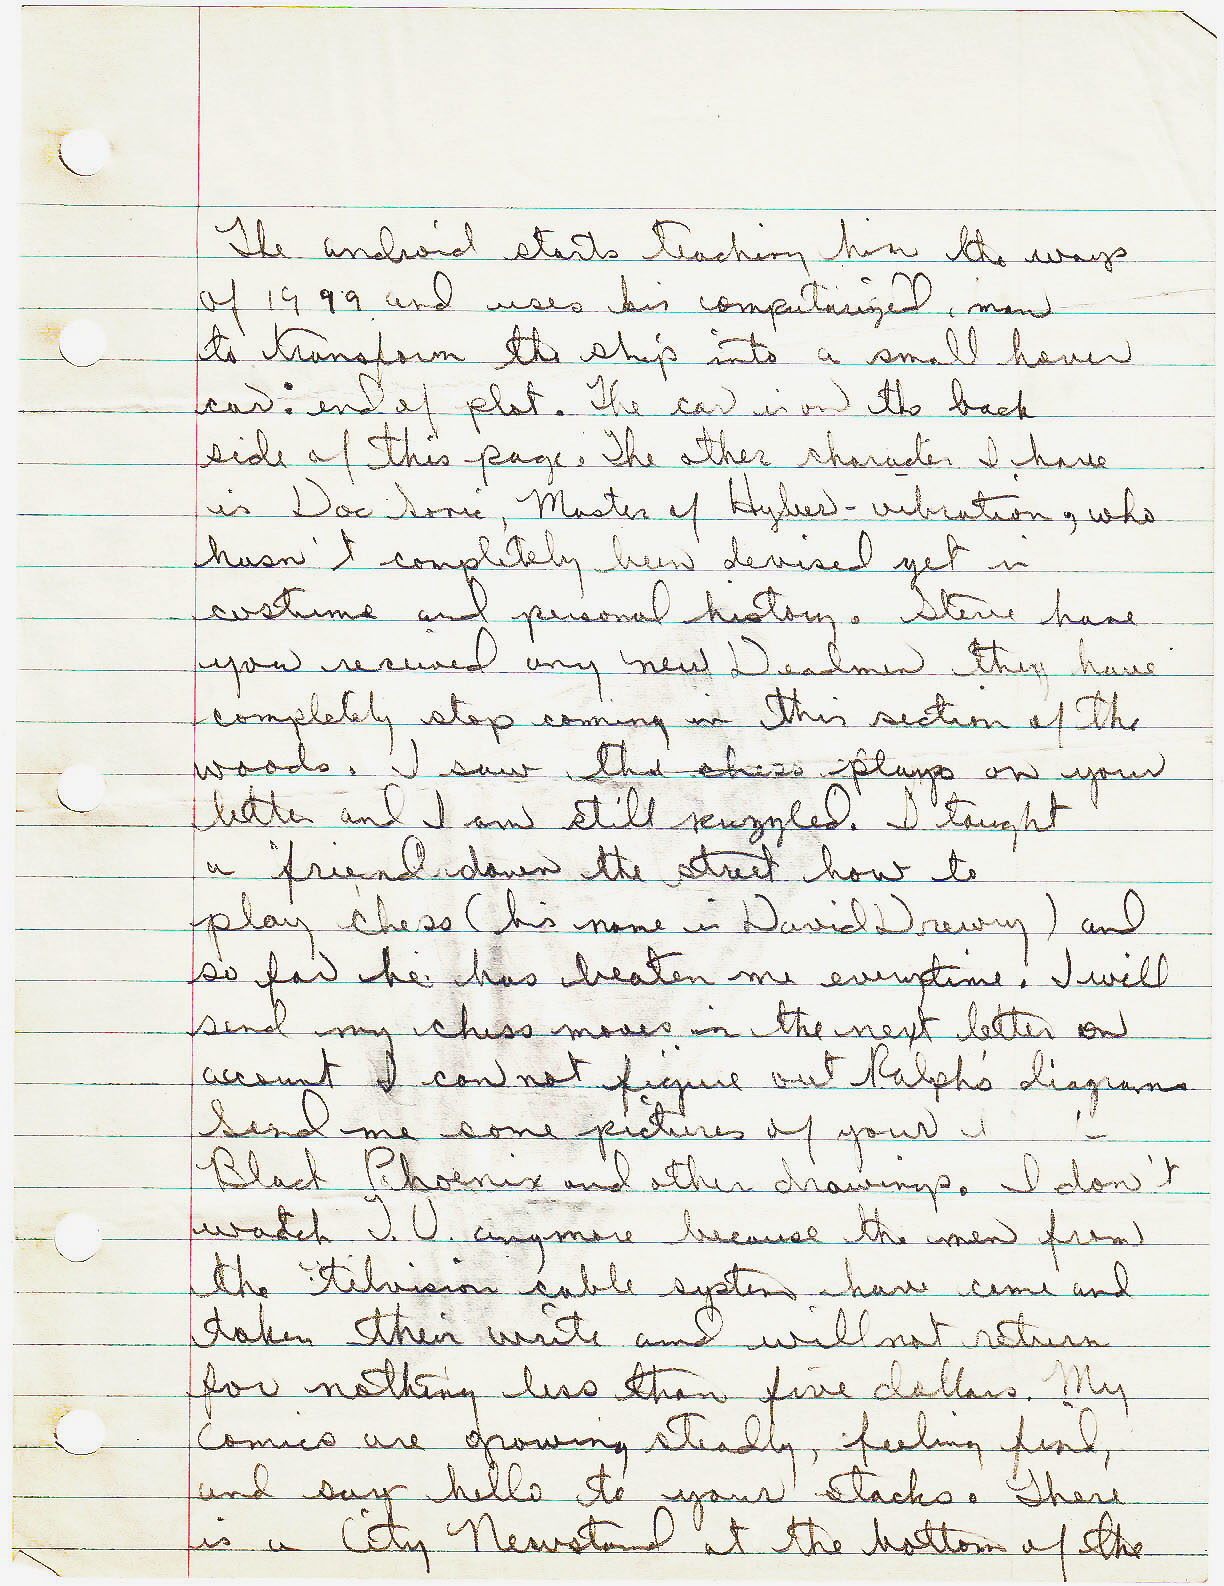 The android starts teaching him the ways
of 1999 and uses his computarized man
to transform the ship into a small hover
car: end of plot. The car is on the back
side of this page. The other charader I have
is Doc Sonic, Master of Hyber-vibration, who
hasn't completely been devised yet in
costume and personal history. Steve have
you received any new Deadmen they have
completely stop coming in this section of the
woods. I saw the chess plays on your
letter and I am still puzzled. I taught
a friend down the street how to
play chess (his name is David Drewry) and
so far he has beaten me everytime. I will
send my chess moves in the next letter on
account I can not figure out Ralph's diagrams
Send me some pictures of your
Black Phoenix and other drawings. I don't
watch T.V. anymore because the men from
the telvision cable system have come and
taken their write and will not return
for nothing less than five dollars. My
comics are growing steadly, feeling find,
and say hello to your stacks. There
is a City Newstand at the bottom of the